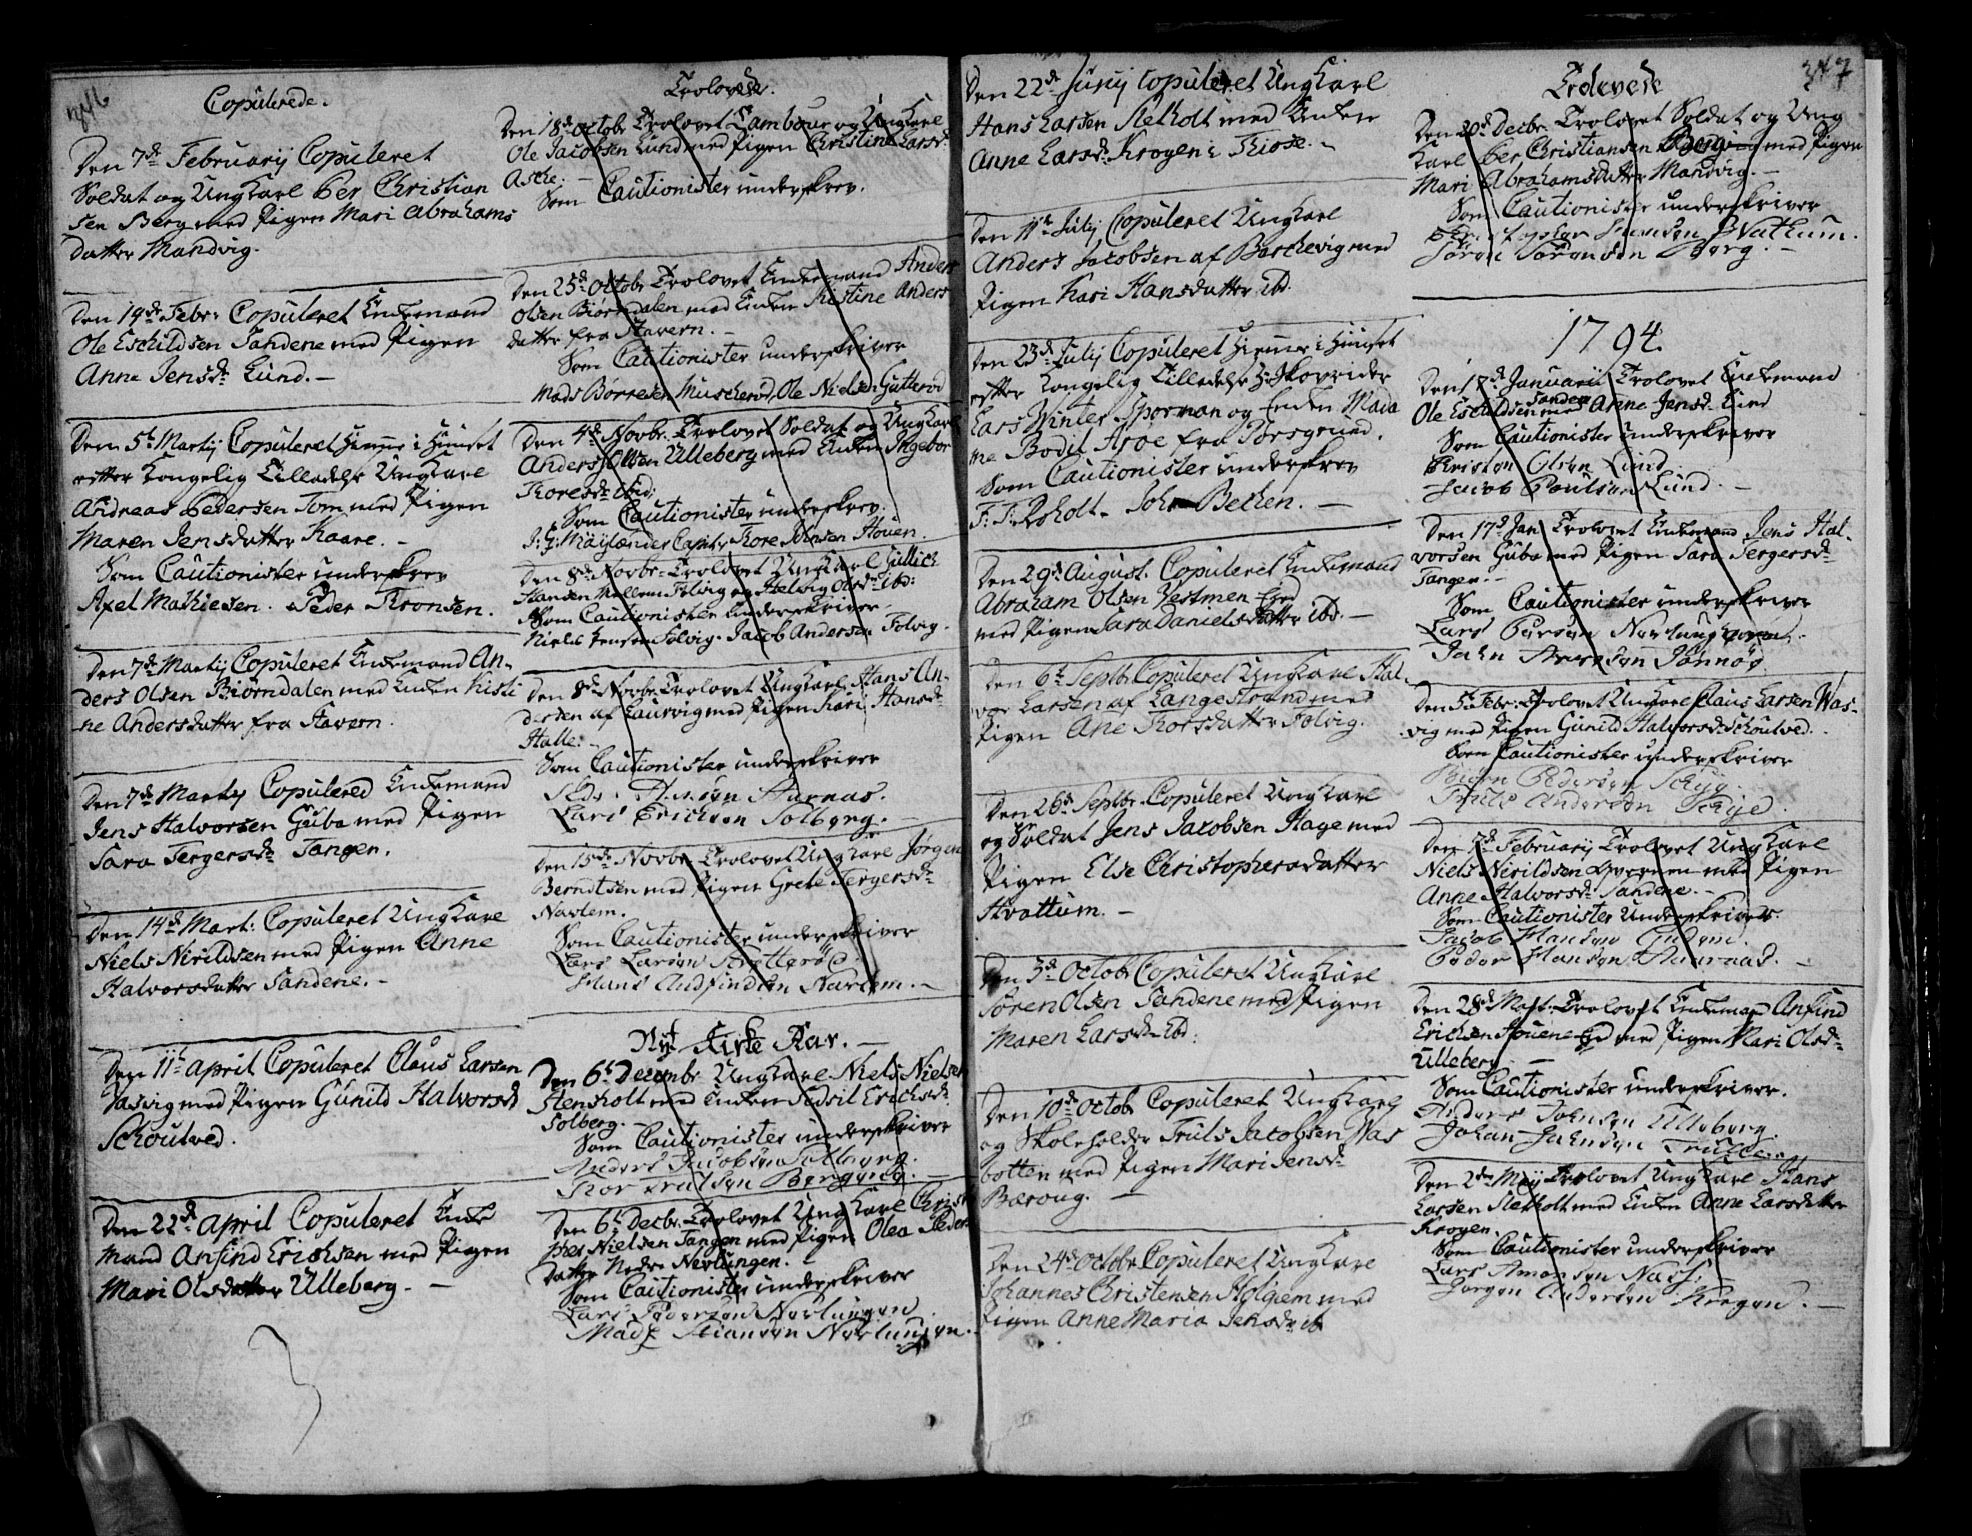 246
Copulerede.
Den 7de Februarij Copuleret
Soldat og Ungkarl Per Christian
sen Berg med Pigen Mari Abrahams
datter Mandvig.
Den 19de Febr: Copuleret Enkemand
Ole Eschildsen Sandene med Pigen
Anne Jensdr Lund. —
Den 5t Martij Copuleret hiemme i Huuset
efter Kongelig Tilladelse Ungkarl
Andreas Pedersen Tom med Pigen
Maren Jensdatter Kaare. —
Som Cautionister underskrev
Axel Mathiesen. Peder Aronsen.
Den 7de Martij Copuleret Enkemand An-
ders Olsen Biørndalen med Enken Kisti
ne Andersdatter fra Stavern.
Den 7de Martij Copulered Enkemand
Jens Halvorsen Guba med Pigen
Sara Tergersdr Tangen.
Den 14de Mart: Copuleret Ungkarl
Niels Nirildsen med Pigen Anne
Halvorsdatter Sandene. —
Den 11t April Copuleret Claus Larsen
Vasvig med Pigen Gunild Halvorsd
Schoutved.
Den 22de April Copuleret Enke
mand Anfind Erichsen med Pigen
Mari Olsdatter Ulleberg. —
Trolovede.
Den 18de Octobr Trolovet Tambour og Ungkarl
Ole Jacobsen Lund med Pigen Christine Larsdr
Asche. —
Som Cautionister underskrev.
Den 25de Octobr Trolovet Enkemand Anders
Olsen Biørndalen med Enken Kistine Anders
datter fra Stavern. —
Som Cautionister underskriver
Mads Børresen Muscherød, Ole Nielsen Gutterød
Den 4de Novbr. Trolovet Soldat og Ungkarl
Anders Olsen Ulleberg med Enken Ingebor
Thoresdr Ibid:
Som Cautionister underskrev.
J: G: Mayslænder Capit: Thore Johnsen Houen.
Den 8de Novbr. Trolovet Ungkarl Gullich
Hansen Mellem Folvig og Helvig Olsdr Ibd:
Som Cautionister underskriver
Niels Jensen Folvig. Jacob Andersen Folvig.
Den 8de Novbr Trolovet Ungkarl Hans An-
dersen af Laurvig med Pigen Kari Hansdr
Halle. —
Som Cautionister underskriver
Lars Erichsen Solberg. —
Den 15de Novbr Trolovet Ungkarl Jørgen
Berntsen med Pigen Grete Tergersdr
Navlem.
Som Cautionister underskriver
Lars Larsen
Hans Anfindsen Navlem. —
Nyt Kirke Aar. —
Den 6t Decembr Ungkarl Niels Nielsen
Stensholt med Enken Sidsil Ericksdr
Solberg. —
Som Cautionister underskriver
Anders Jacobsen Solberg.
Den 6t Decbr. Trolovet Ungkarl Christ
pher Nielsen Tangen med Pigen Olea Peders
datter Nedre Nevlungen.
Som Cautionister underskriver
Lars Pedersen Nevlungen
Mads Stiansen Nevlungen.
Den 22de Junij Copuleret Ungkarl
Hans Larsen Sletholt med Enken
Anne Larsdr Krogen i Tiose. —
Den 11t Julij Copuleret Ungkarl
Anders Jacobsen af Barchevig med
Pigen Kari Hansdatter ibd.
Den 23de Julij Copuleret hiemme i Huuset
efter Kongelig Tilladelse H: Skovrider
Lars Winter Sporman og Enken Mada
me Bodil Aroe fra Porsgrund.
Som Cautionister underskrev
F: T: Boholdt. John Bechen. —
Den 29de August. Copuleret Enkemand
Abraham Olsen Vestmen Eged
med Pigen Sara Danielsdatter ibd. —
Den 6t Septbr Copuleret Ungkarl Hal-
vor Larsen af Langestrand med
Pigen Ane Thorsdatter Folvig.
Den 26de Septbr. Copuleret Ungkarl
og Soldat Jens Jacobsen Hage med
Pigen Else Christophersdatter
Hvattum. —
Den 3de Octobr Copuleret Ungkarl
Søren Olsen Sandene med Pigen
Maren Larsdr Ibd:
Den 10de Octobr Copuleret Ungkarl
og Skoleholder Truls Jacobsen Was
botten med Pigen Mari Jensdr
Baroug. —
Den 24de Octobr Copuleret Ungkarl
Johannes Christensen Holgiem med
Pigen Anne Maria Jensdr ib
247
Trolovede
Den 20de Decbr. Trolovet Soldat og Ung
karl Per Christiansen Berg med Pigen
Mari Abrahamsdatter Mandvig. —
Som Cautionister underskriver
Christopher Hansen Hvattum.
Søren Sørensen Berg. —
1794.
Den 17de Januarij Trolovet Enkemand
Ole Eschildsen Sandene med Anne Jensdr Lund
Som Cautionister underskriver
Christen Olsen Lund
Jacob Poulsen Lund. —
Den 17de Jan Trolovet Enkemand Jens Hal-
vorsen Guba med Pigen Sara Tergersdr
Tangen. —
Som Cautionister underskriver
Lars Persen Nevlunghavn.
Jahn
Den 5t Febr. Trolovet Ungkarl Claus Larsen Was-
vig med Pigen Gunild Halvorsdr Schoutved.
Som Cautionister underskriver
Biørn Pedersen
Truls Andersen
Den 7de Februarij Trolovet Ungkarl
Niels Nirildsen Qværnen med Pigen
Anne Halvorsdr Sandene. —
Som Cautionister Underskriver.
Jacob Hansen
Peder Hansen
Den 28de Mart. Trolovet Enkemand Anfind
Erichsen Houene Eged med Pigen Mari Olsdr
Ulleberg —
Som Cautionister underskriver.
Anders Johnsen Ulleberg.
Johan Jahnsen
Den 2den Maij Trolovet Ungkarl Hans
Larsen Sletholt med Enken Anne Larsdatter
Krogen.
Som Cautionister underskriver
Lars Amonsen
Jørgen Andersen Krogen. —